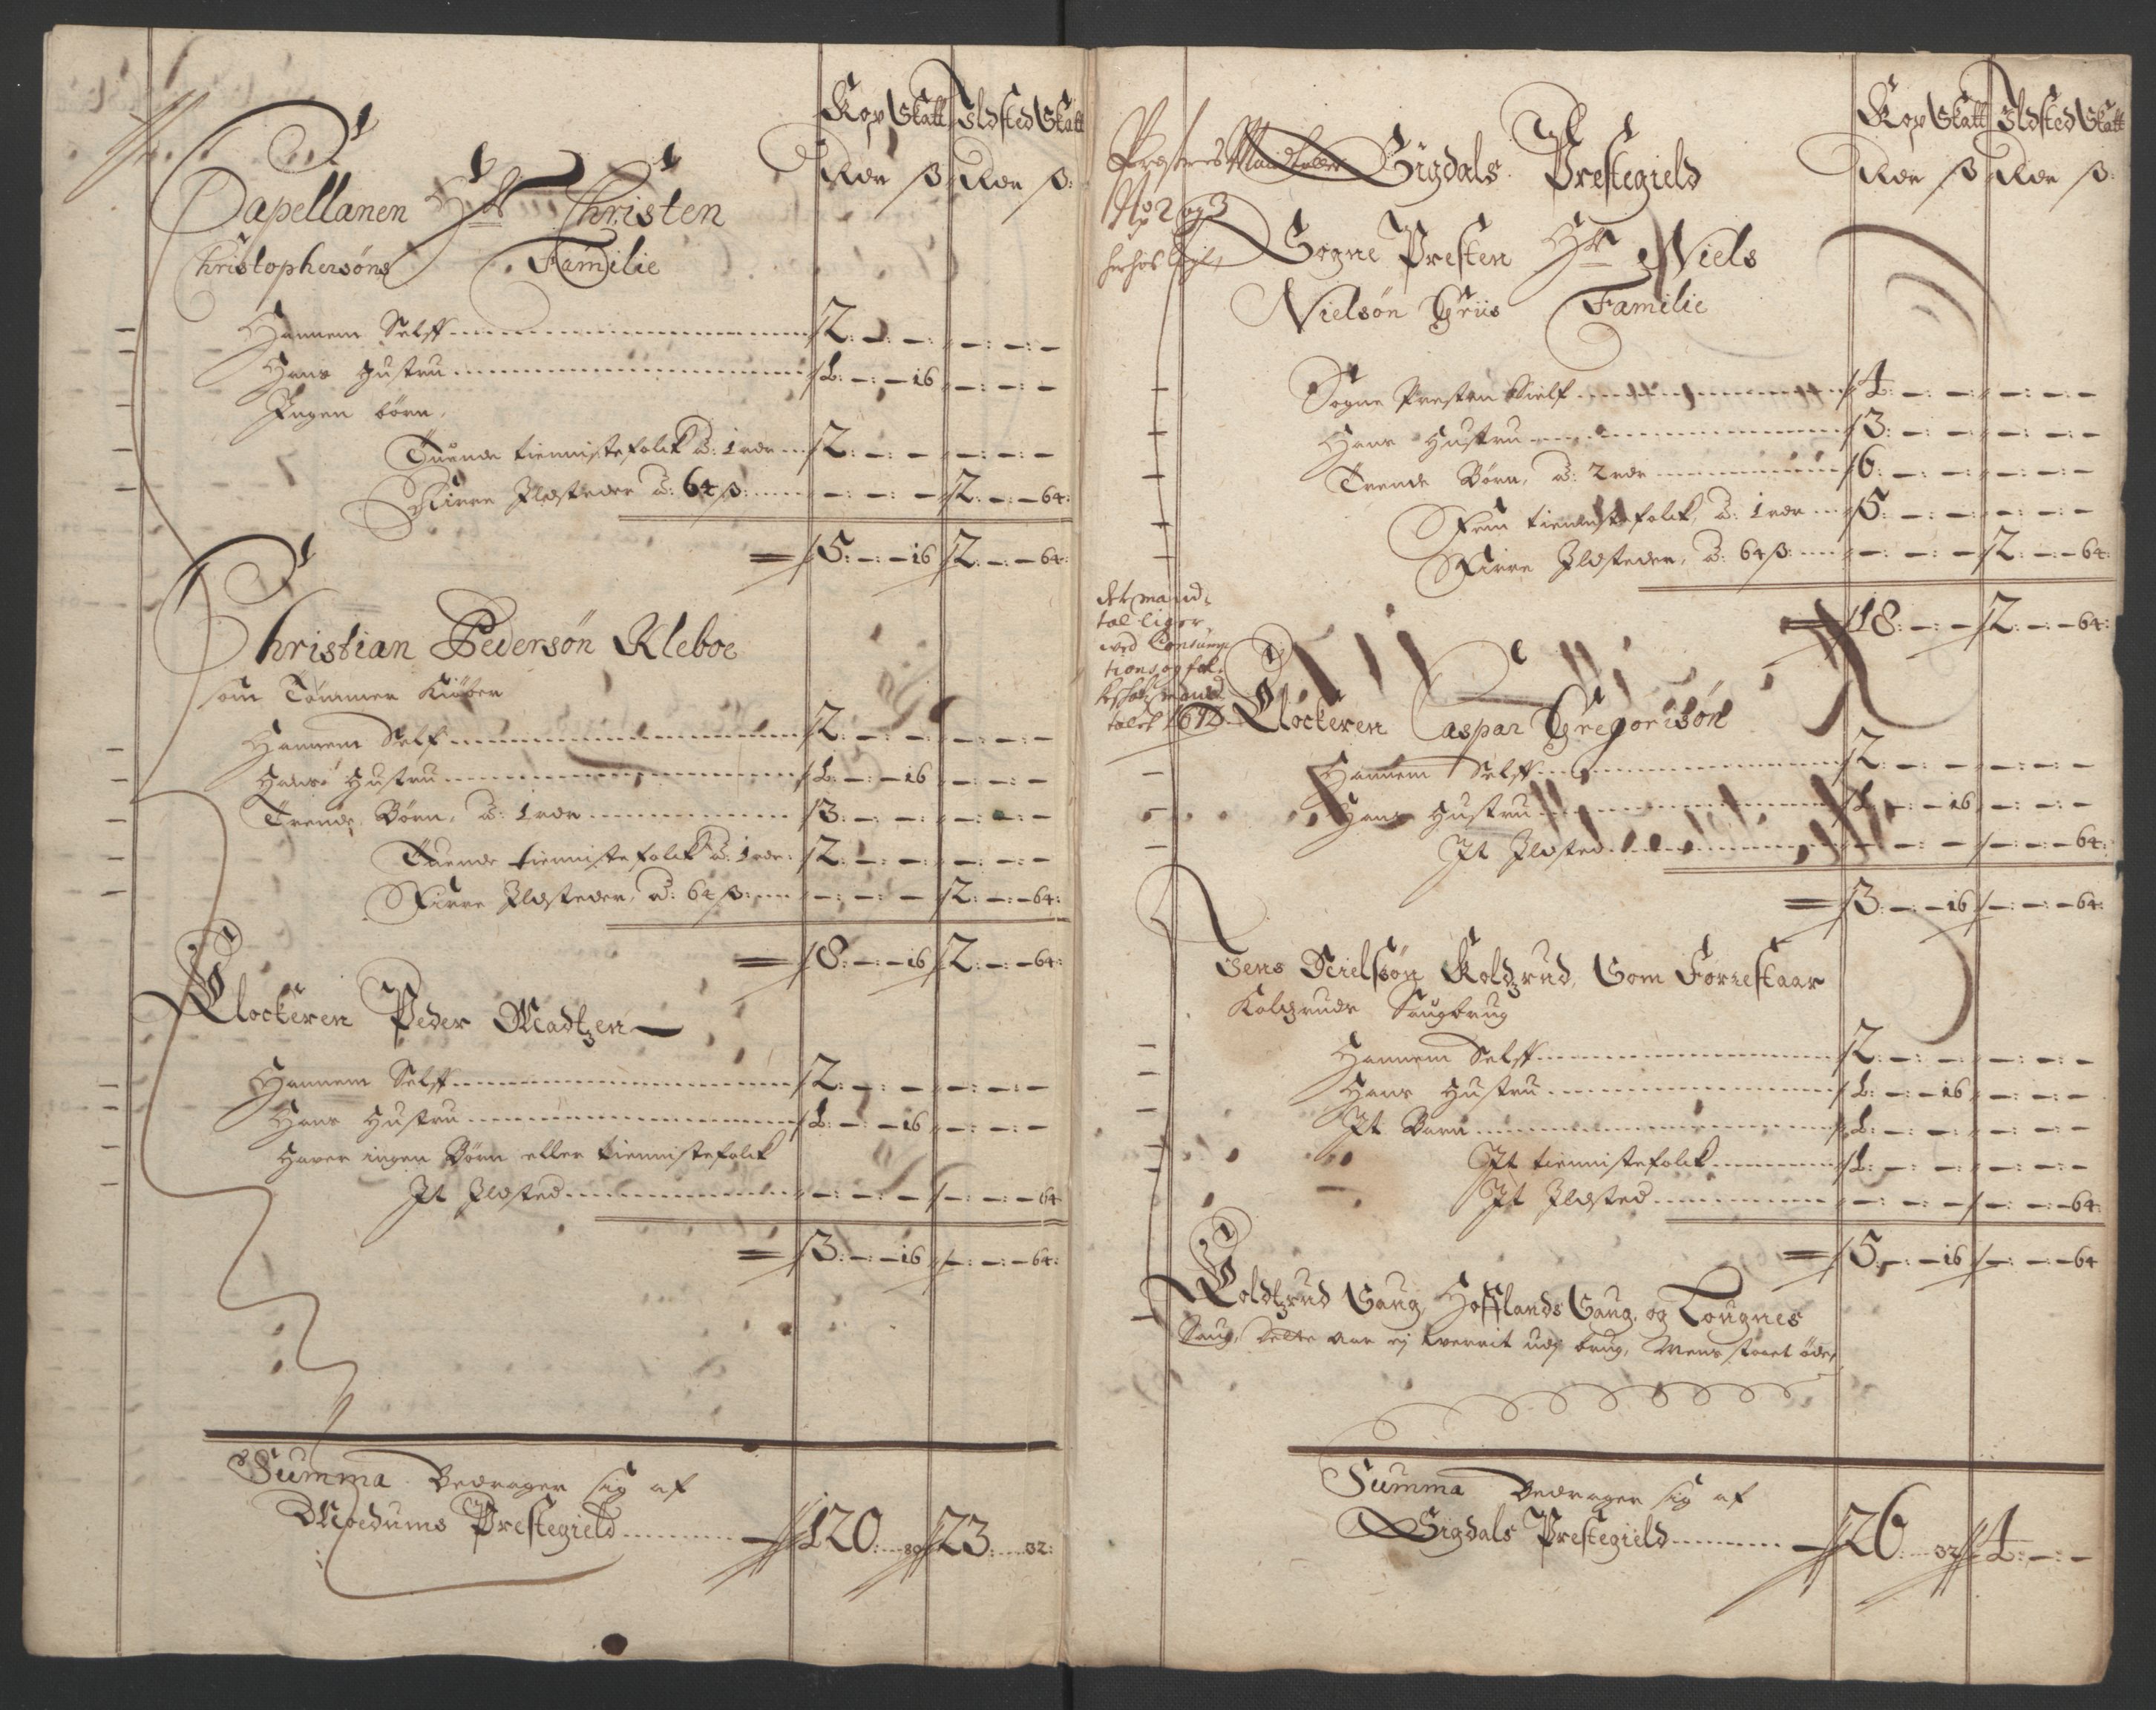 Kop Skatt Ildsted Skatt
Rdr ß Rdr ß:
Capellanen Hr Christen
Christophersøns Familie
Hannem Selff 2: —: — —: —: —
Hans Hustru 1: —: —16 —: —: —
Ingen børn,
Tuende tiennistefolck à: 1 rdr 2: —: — —: —: —
Firre Ildsteder à: 64 ß: —: —: — 2: —: —64:
5: —: —16 2: —: —64:
Christian Pedersøn Kleboe
som Tømmer Kiøber
Hannem Self 2: —: — —: —: —
Hans Hustru 1: —: —16 —: —: —
Trende Børn, à: 1 rdr 3: —: — —: —: —
Tuende tiennistefolck à: 1 rdr: 2: —: — —: —: —
Firre Ildsteder, à: 64 ß: —: —: — 2: —: —64:
8: —: —16 2: —: —64:
Clockeren Peder Madtzen
Hannem Selff 2: —: — —: —: —
Hans Hustru 1: —: —16 —: —: —
Haver ingen Børn eller tiennistefolck
It Ildsted —: —: — —: —: —64
3: —: —16 —: —: —64:
Summa Bedrager sig af
Moedums Prestegield 120: 80 23: 32:
Kop Skatt Ildsted Skatt
Rdr ß Rdr ß:
Præstens Mandtaller
No 2 og 3
herhos
Sigdals Prestegield
Sogne Presten Hr Niels
Nielsøn Griis Familie
Sogne Presten Sielf 4: —: — —: —: —
Hans Hustru 3: —: — —: —: —
Trende Børn, à: 2 rdr 6: —: — —: —: —
Fem tiennistefolck, à: 1 rdr 5: —: — —: —: —
Firre Ildsteder, à: 64 ß: —: —: — 2: —: —64:
18: —: — 2: —: —64:
det mand-
tal liger
ved Consump-
tions og fol-
keskat mand
talet 1692
Clockeren Caspar Gregorisøn
Hannem Selff 2: —: — —: —: —
Hans Hustru 1: —: —16 —: —: —
It Ildsted —: —: — —: —: —64:
3: —: —16 —: —: —64:
Jens Nielsøn Koldzrud, Som Forrestaar
Koldzruds Saugbrug
Hannem Selff 2: —: — —: —: —
Hans Hustru 1: —: —16 —: —: —
It Barn 1: —: — —: —: —
It tiennistefolck 1: —: — —: —: —
It Ildsted —: —: — —: —: —64:
5: —: —16 —: —: —64
Coldtzrud Saug, Hofflands Saug, og Lougnes
Saug, Dette Aar ej Verrit udj brug, Mens staaet øde,
Summa Bedrager sig af
Sigdals Prestegield 26: 32 4: —: —